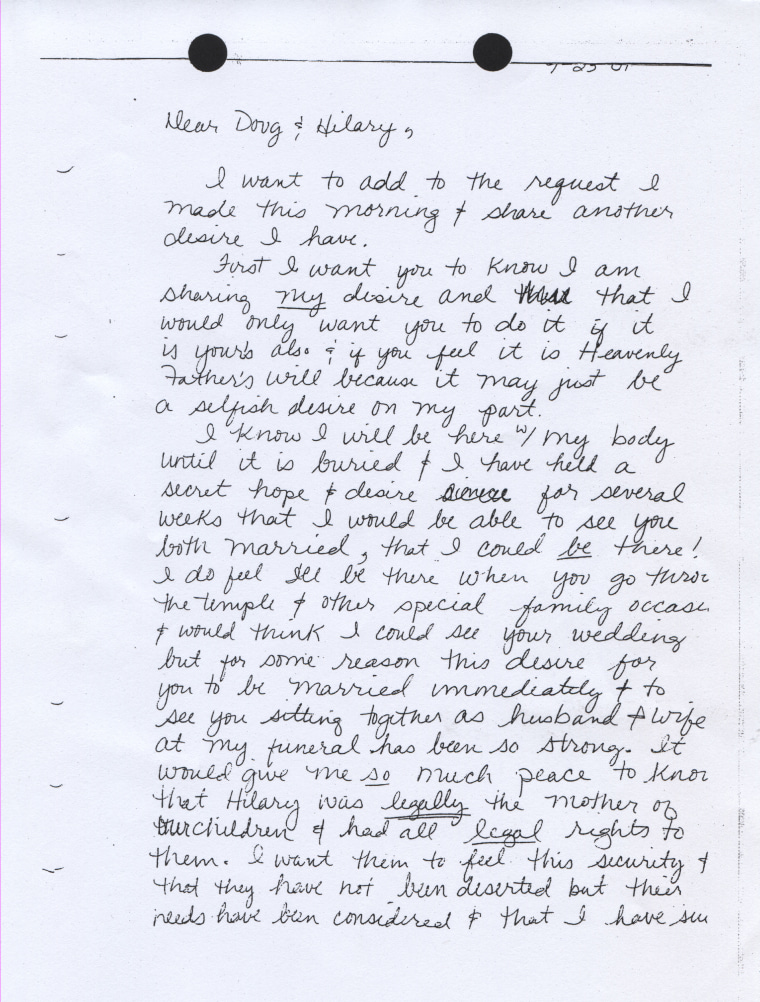 Dear Doug & Hilary,
I want to add to the request I
made this morning & share another
desire I have.
First I want you to know I am
sharing my desire and that I
would only want you to do it if it
is your's also & if you feel it is Heavenly
Father's will because it may just be
a selfish desire on my part.
I know I will be here w/ my body
until it is buried & I have held a
secret hope & desire for several
weeks that I would be able to see you
both married, that I could be there!
I do feel I'll be there when you go throu
the temple & other special family occas
& would think I could see your wedding
but for some reason this desire for
you to be married immediately & to
see you sitting together as husband & wife
at my funeral has been so strong. It
would give me so much peace to know
that Hilary was legally the mother of
our children & had all legal rights to
them. I want them to feel this security &
that they have not been deserted but their
needs have been considered & that I have